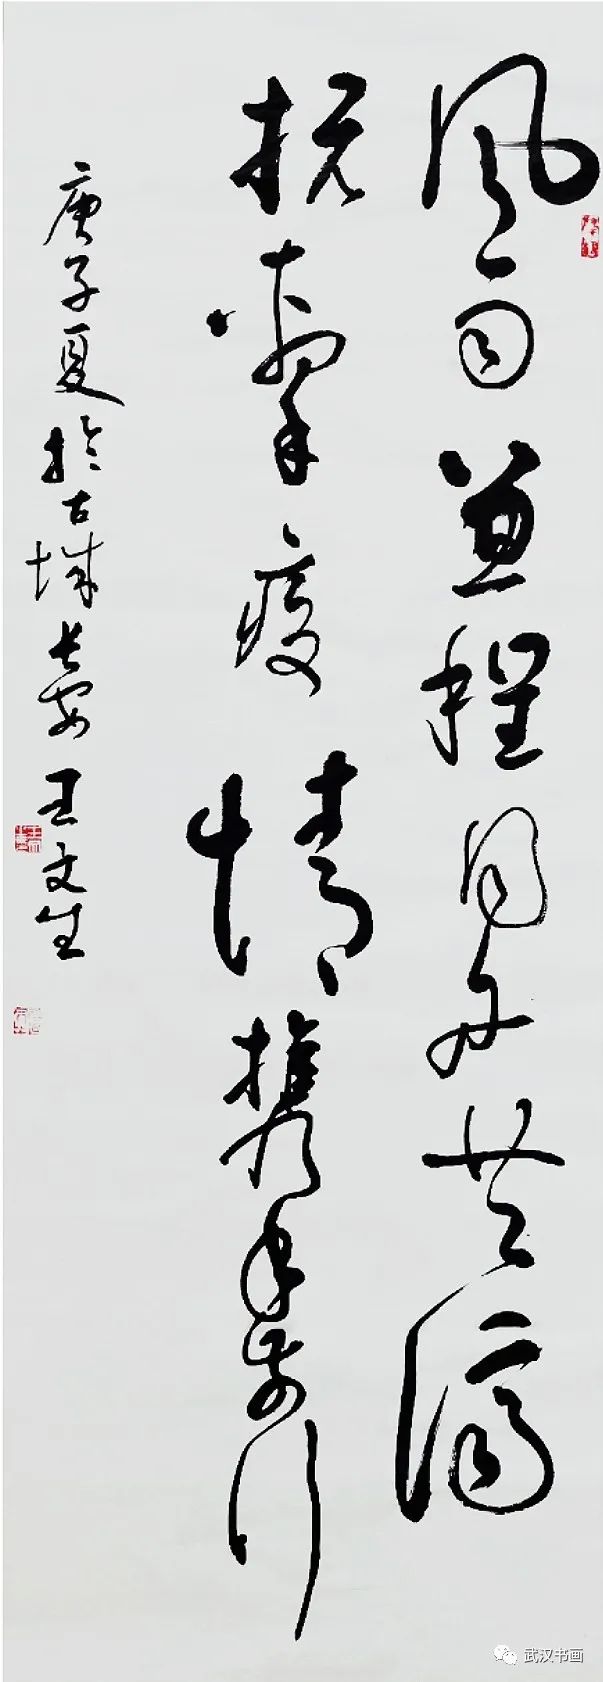 風雨兼程同舟共濟
抗擊疫情攜手前行
庚子夏於古城長安王文生
武汉书画